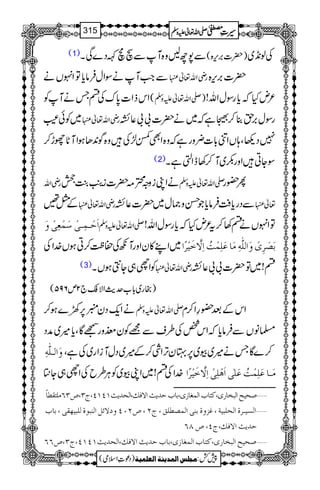 سیرتِ مصطفیٰ صلی اللہ تعالیٰ علیہ وسلم 315
کی لونڈی (حضرت بریرہ) سے پوچھ لیں وہ آپ سے سچ مچ کہہ دے گی۔ (1)
حضرت بریرہ رضی اللہ تعالیٰ عنہا سے جب آپ نے سوال فرمایا تو انہوں نے
عرض کیا کہ یا رسول اللہ! (صلی اللہ تعالیٰ علیہ وسلم) اس ذات پاک کی قسم جس نے آپ کو
رسول برحق بنا کر بھیجا ہے کہ میں نے حضرت بی بی عائشہ رضی اللہ تعالیٰ عنہا میں کوئی عیب
نہیں دیکھا، ہاں اتنی بات ضرور ہے کہ وہ ابھی کمسن لڑکی ہیں وہ گوندھا ہوا آٹا چھوڑ کر
سو جاتی ہیں اور بکری آکر کھا ڈالتی ہے۔ (2)
پھر حضور صلی اللہ تعالیٰ علیہ وسلم نے اپنی زوجہ محترمہ حضرت زینب بنت جحش رضی اللہ
تعالیٰ عنہا سے دریافت فرمایا جو حسن و جمال میں حضرت عائشہ رضی اللہ تعالیٰ عنہا کے مثل تھیں
تو انہوں نے قسم کھا کر یہ عرض کیا کہ یا رسول اللہ! (صلی اللہ تعالیٰ علیہ وسلم) اَحْمِیْ سَمْعِیْ وَ
بَصَرِیْ وَاللّٰہِ مَا عَلِمْتُ اِلَّا خَیْرًا میں اپنے کان اور آنکھ کی حفاظت کرتی ہوں خدا کی
قسم! میں تو حضرت بی بی عائشہ رضی اللہ تعالیٰ عنہا کو اچھی ہی جانتی ہوں۔ (3)
(بخاری باب حدیث الافک ج۲ ص۵۹۶)
اس کے بعد حضور اکرم صلی اللہ تعالیٰ علیہ وسلم نے ایک دن منبر پر کھڑے ہو کر
مسلمانوں سے فرمایا کہ اس شخص کی طرف سے مجھے کون معذور سمجھے گا، یا میری مدد
کرے گا جس نے میری بیوی پر بہتان تراشی کر کے میری دل آزاری کی ہے، وَاللّٰہِ
مَا عَلِمْتُ عَلٰی اَھْلِیْ اِلَّا خَیْرًا خدا کی قسم! میں اپنی بیوی کو ہر طرح کی اچھی ہی جانتا
صحیح البخاری، کتاب المغازی، باب حدیث الافک، الحدیث ۴۱۴۱، ج۳، ص۶۳ ملتقطاً
السیرۃ الحلبیۃ، غزوۃ بنی المصطلق، ج۲، ص۴۰۲ ودلائل النبوۃ للبیھقی، باب
حدیث الافک، ج۴، ص ۶۸
صحیح البخاری، کتاب المغازی، باب حدیث الافک، الحدیث ۴۱۴۱، ج۳، ص۶۶
پیش کش: مجلس المدینۃ العلمیۃ (دعوتِ اسلامی)